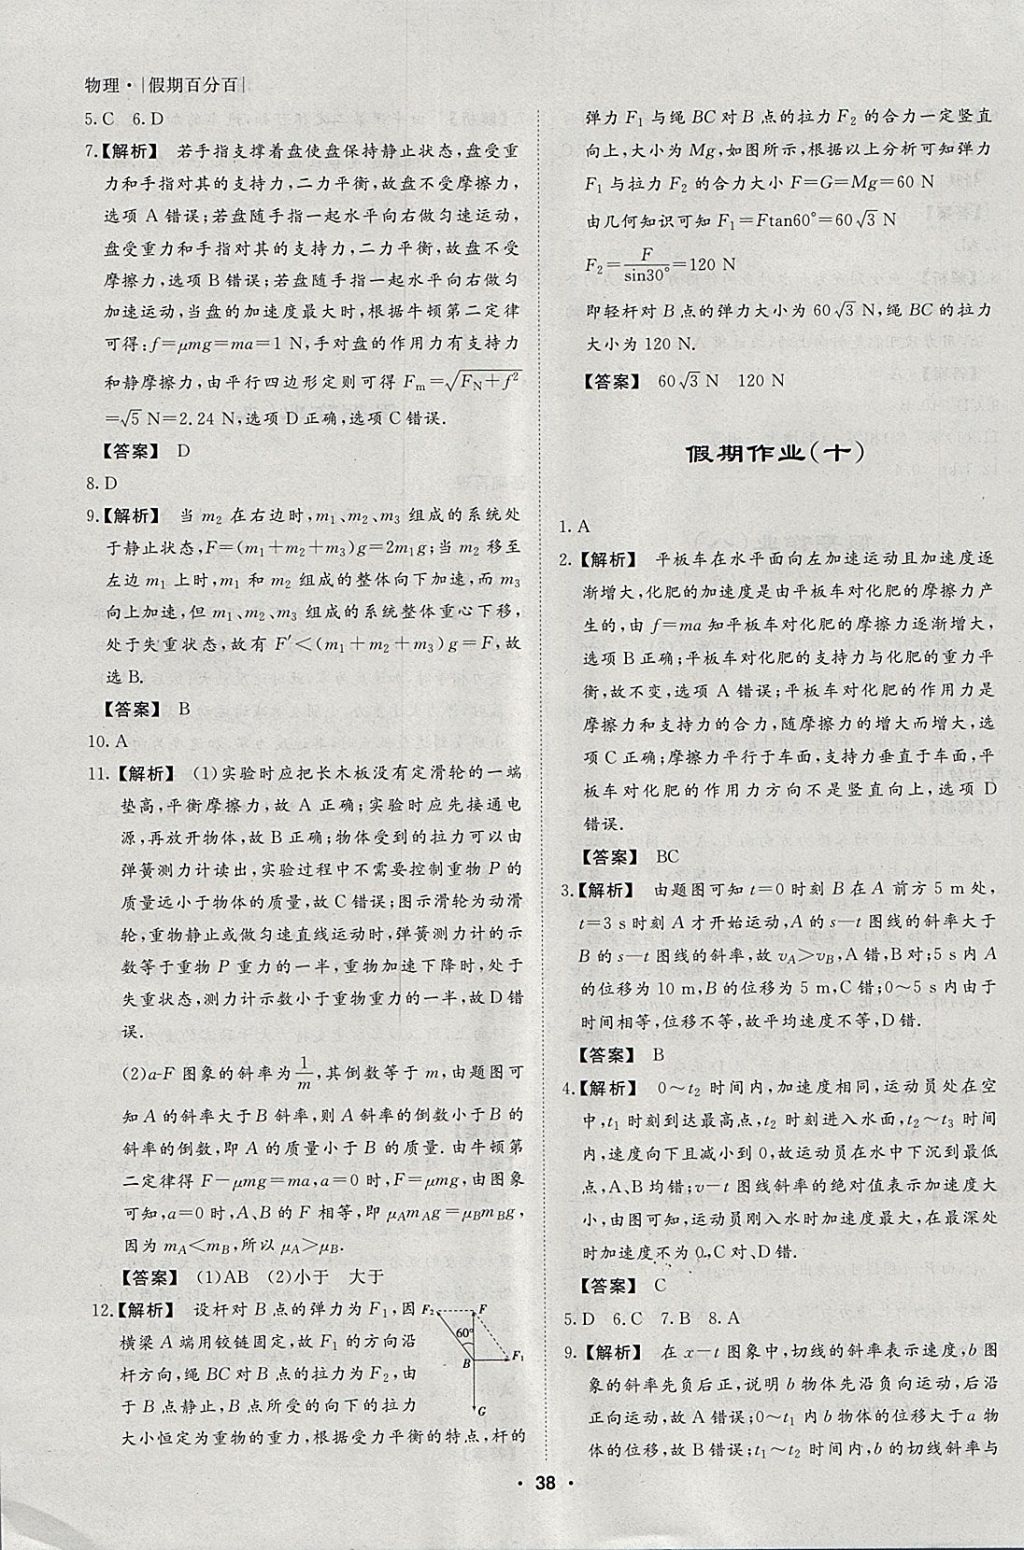 物理·|假期百分百|
5.C 6.D
7.【解析】 若手指支撑着盘使盘保持静止状态,盘受重
力和手指对其的支持力,二力平衡,故盘不受摩擦力,
选项 A 错误;若盘随手指一起水平向右做匀速运动,
盘受重力和手指对其的支持力,二力平衡,故盘不受
摩擦力,选项 B 错误;若盘随手指一起水平向右做匀
加速运动,当盘的加速度最大时,根据牛顿第二定律
可得:f=μmg=ma=1 N,手对盘的作用力有支持力
和静摩擦力,由平行四边形定则可得 Fm=√(FN+f²)
=√5 N=2.24 N,选项 D 正确,选项 C 错误.
【答案】 D
8.D
9.【解析】 当 m₂ 在右边时,m₁、m₂、m₃ 组成的系统处
于静止状态,F=(m₁+m₂+m₃)g=2m₁g;当 m₂ 移至
左边 m₁ 上时,m₁ 和 m₂ 组成的整体向下加速,而 m₃
向上加速,但 m₁、m₂、m₃ 组成的系统整体重心下移,
处于失重状态,故有 F′<(m₁+m₂+m₃)g=F,故
选 B.
【答案】 B
10.A
11.【解析】 (1)实验时应把长木板没有定滑轮的一端
垫高,平衡摩擦力,故 A 正确;实验时应先接通电
源,再放开物体,故 B 正确;物体受到的拉力可以由
弹簧测力计读出,实验过程中不需要控制重物 P 的
质量远小于物体的质量,故 C 错误;图示滑轮为动滑
轮,重物静止或做匀速直线运动时,弹簧测力计的示
数等于重物 P 重力的一半,重物加速下降时,处于
失重状态,测力计示数小于重物重力的一半,故 D 错
误.
(2)a-F 图象的斜率为1/m,其倒数等于 m,由题图可
知 A 的斜率大于 B 斜率,则 A 斜率的倒数小于 B 的
斜率的倒数,即 A 的质量小于 B 的质量.由牛顿第
二定律得 F-μmg=ma,a=0 时,F=μmg,由图象
可知,a=0 时,A、B 的 F 相等,即 μAmAg=μBmBg,
因为 mA<mB,所以 μA>μB.
【答案】 (1)AB (2)小于 大于
12.【解析】 设杆对 B 点的弹力为 F₁,因
横梁 A 端用铰链固定,故 F₁ 的方向沿
杆方向,绳 BC 对 B 点的拉力为 F₂,由
于 B 点静止,B 点所受的向下的拉力
大小恒定为重物的重力,根据受力平衡的特点,杆的
F₂ F
60°
B F₁
G
弹力 F₁ 与绳 BC 对 B 点的拉力 F₂ 的合力一定竖直
向上,大小为 Mg,如图所示,根据以上分析可知弹力
F₁ 与拉力 F₂ 的合力大小 F=G=Mg=60 N
由几何知识可知 F₁=Ftan60°=60√3 N
F₂=F/sin30°=120 N
即轻杆对 B 点的弹力大小为 60√3 N,绳 BC 的拉力
大小为 120 N.
【答案】 60√3 N 120 N
假期作业(十)
1.A
2.【解析】 平板车在水平面向左加速运动且加速度逐
渐增大,化肥的加速度是由平板车对化肥的摩擦力产
生的,由 f=ma 知平板车对化肥的摩擦力逐渐增大,
选项 B 正确;平板车对化肥的支持力与化肥的重力平
衡,故不变,选项 A 错误;平板车对化肥的作用力是
摩擦力和支持力的合力,随摩擦力的增大而增大,选
项 C 正确;摩擦力平行于车面,支持力垂直于车面,平
板车对化肥的作用力方向不是竖直向上,选项 D
错误.
【答案】 BC
3.【解析】 由题图可知 t=0 时刻 B 在 A 前方 5 m 处,
t=3 s 时刻 A 才开始运动,A 的 s—t 图线的斜率大于
B 的 s—t 图线的斜率,故 vA>vB,A 错,B 对;5 s 内 A
的位移为 10 m,B 的位移为 5 m,C 错;0~5 s 内由于
时间相等,位移不等,故平均速度不等,D 错.
【答案】 B
4.【解析】 0~t₂ 时间内,加速度相同,运动员处在空
中,t₁ 时刻到达最高点,t₂ 时刻进入水面,t₂~t₃ 时间
内,速度向下且减小到 0,故运动员在水中下沉到最低
点,A、B 均错;v—t 图线斜率的绝对值表示加速度大
小,由图可知,运动员刚入水时加速度最大,在最深处
时加速度不为 0,C 对、D 错.
【答案】 C
5.D 6.C 7.B 8.A
9.【解析】 在 x—t 图象中,切线的斜率表示速度,b 图
象的斜率先负后正,说明 b 物体先沿负向运动,后沿
正向运动,故 A 错误;0~t₁ 内 b 物体的位移大于 a 物
体的位移,故 B 错误;t₁~t₂ 时间内,b 的切线斜率与
·38·